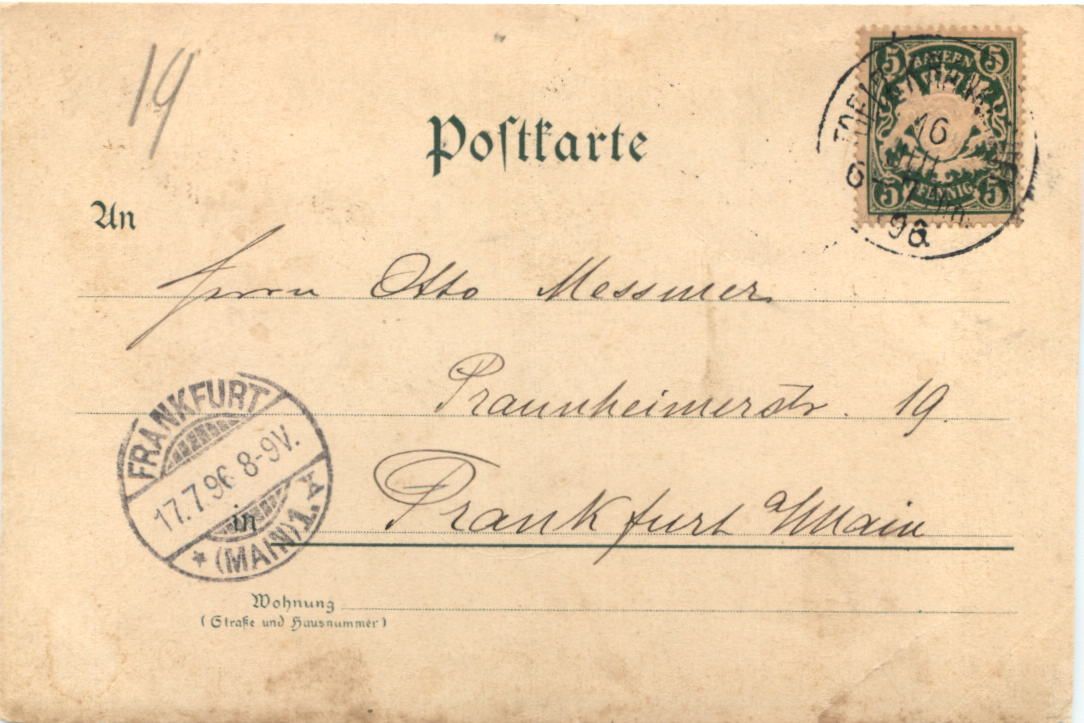 19
Postkarte
5 BAYERN 5
16
JUL
7
96
5 PFENNIG 5
An
Herrn Otto Messmer
Praunheimerstr. 19
FRANKFURT
17.7.96 8-9V.
* (MAIN) 1. A
in Frankfurt a/Main
Wohnung
(Straße und Hausnummer)